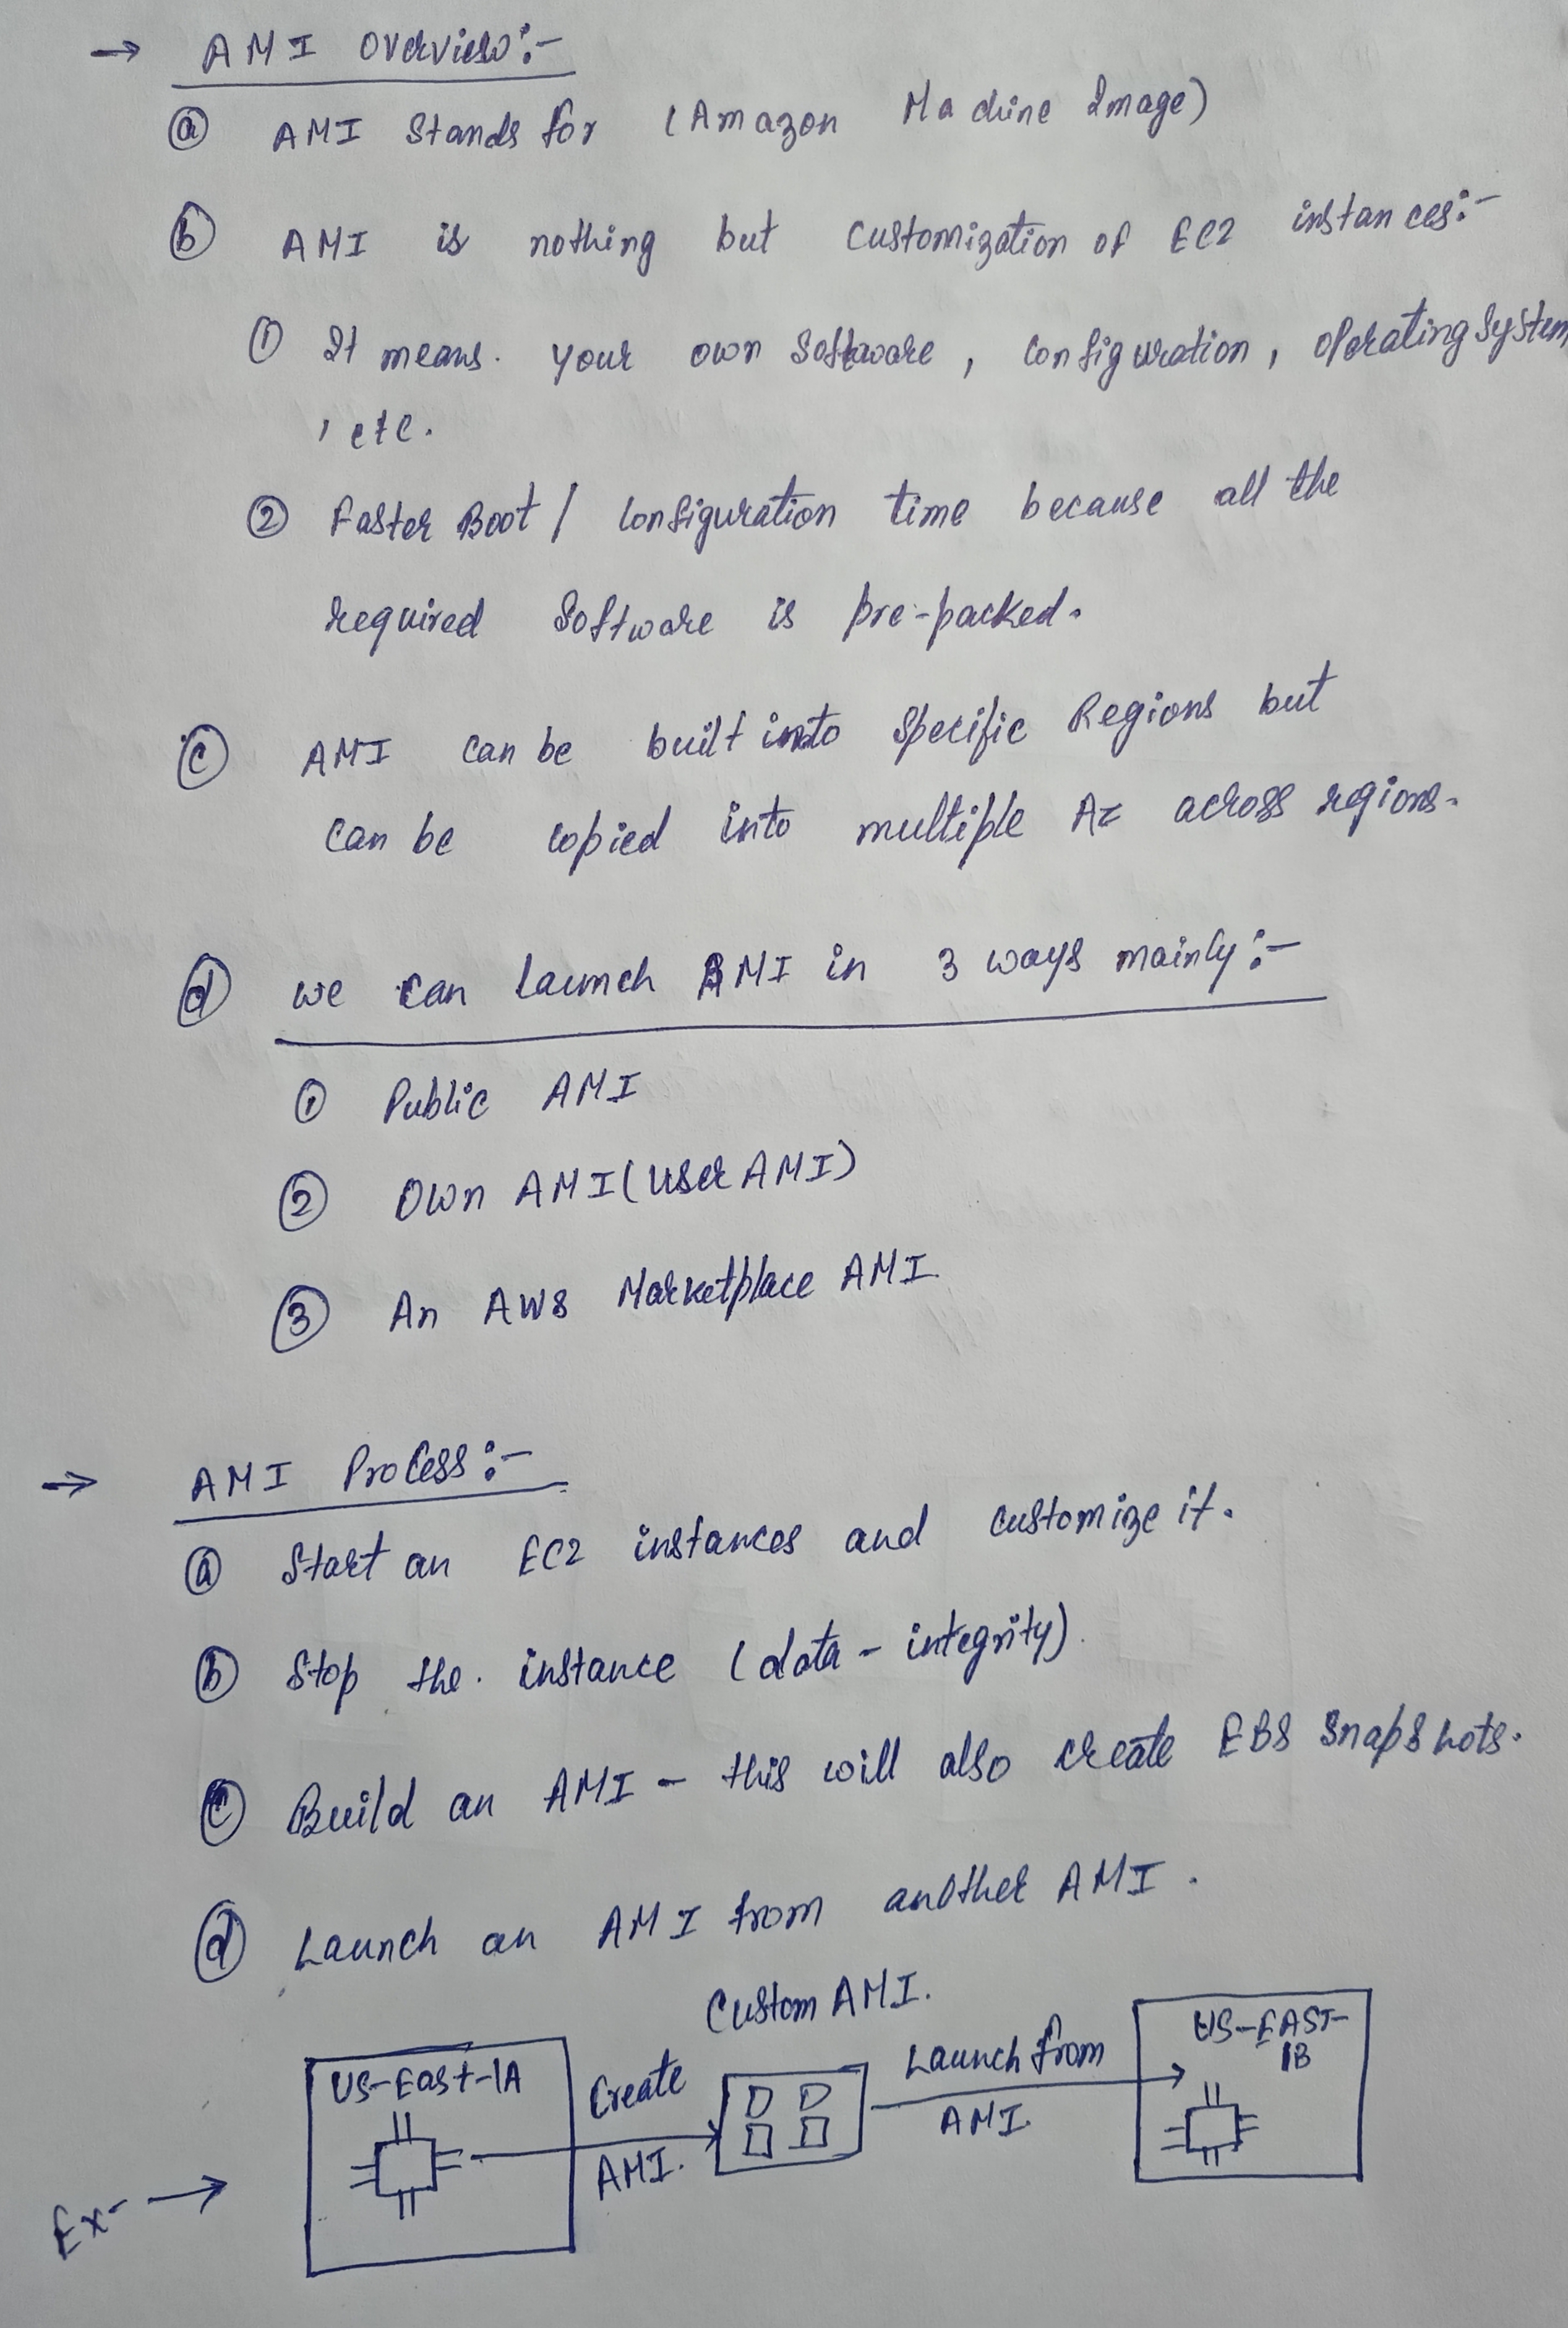 → AMI Overview:-
ⓐ AMI Stands for (Amazon Machine Image)
ⓑ AMI is nothing but Customization of EC2 instances:-
① It means. your own Software, Configuration, Operating System
, etc.
② Faster Boot / Configuration time because all the
required Software is pre-packed.
ⓒ AMI can be built into Specific Regions but
can be copied into multiple Az across regions.
ⓓ we can Launch AMI in 3 ways mainly:-
① Public AMI
② Own AMI (User AMI)
③ An AWS Marketplace AMI
→ AMI Process:-
ⓐ Start an EC2 instances and customize it.
ⓑ Stop the. instance (data - integrity).
ⓒ Build an AMI - this will also create EBS Snapshots.
ⓓ Launch an AMI from another AMI.
Custom AMI.
US-East-1A
Create
AMI.
Launch from
AMI.
US-EAST-
1B
Ex- →